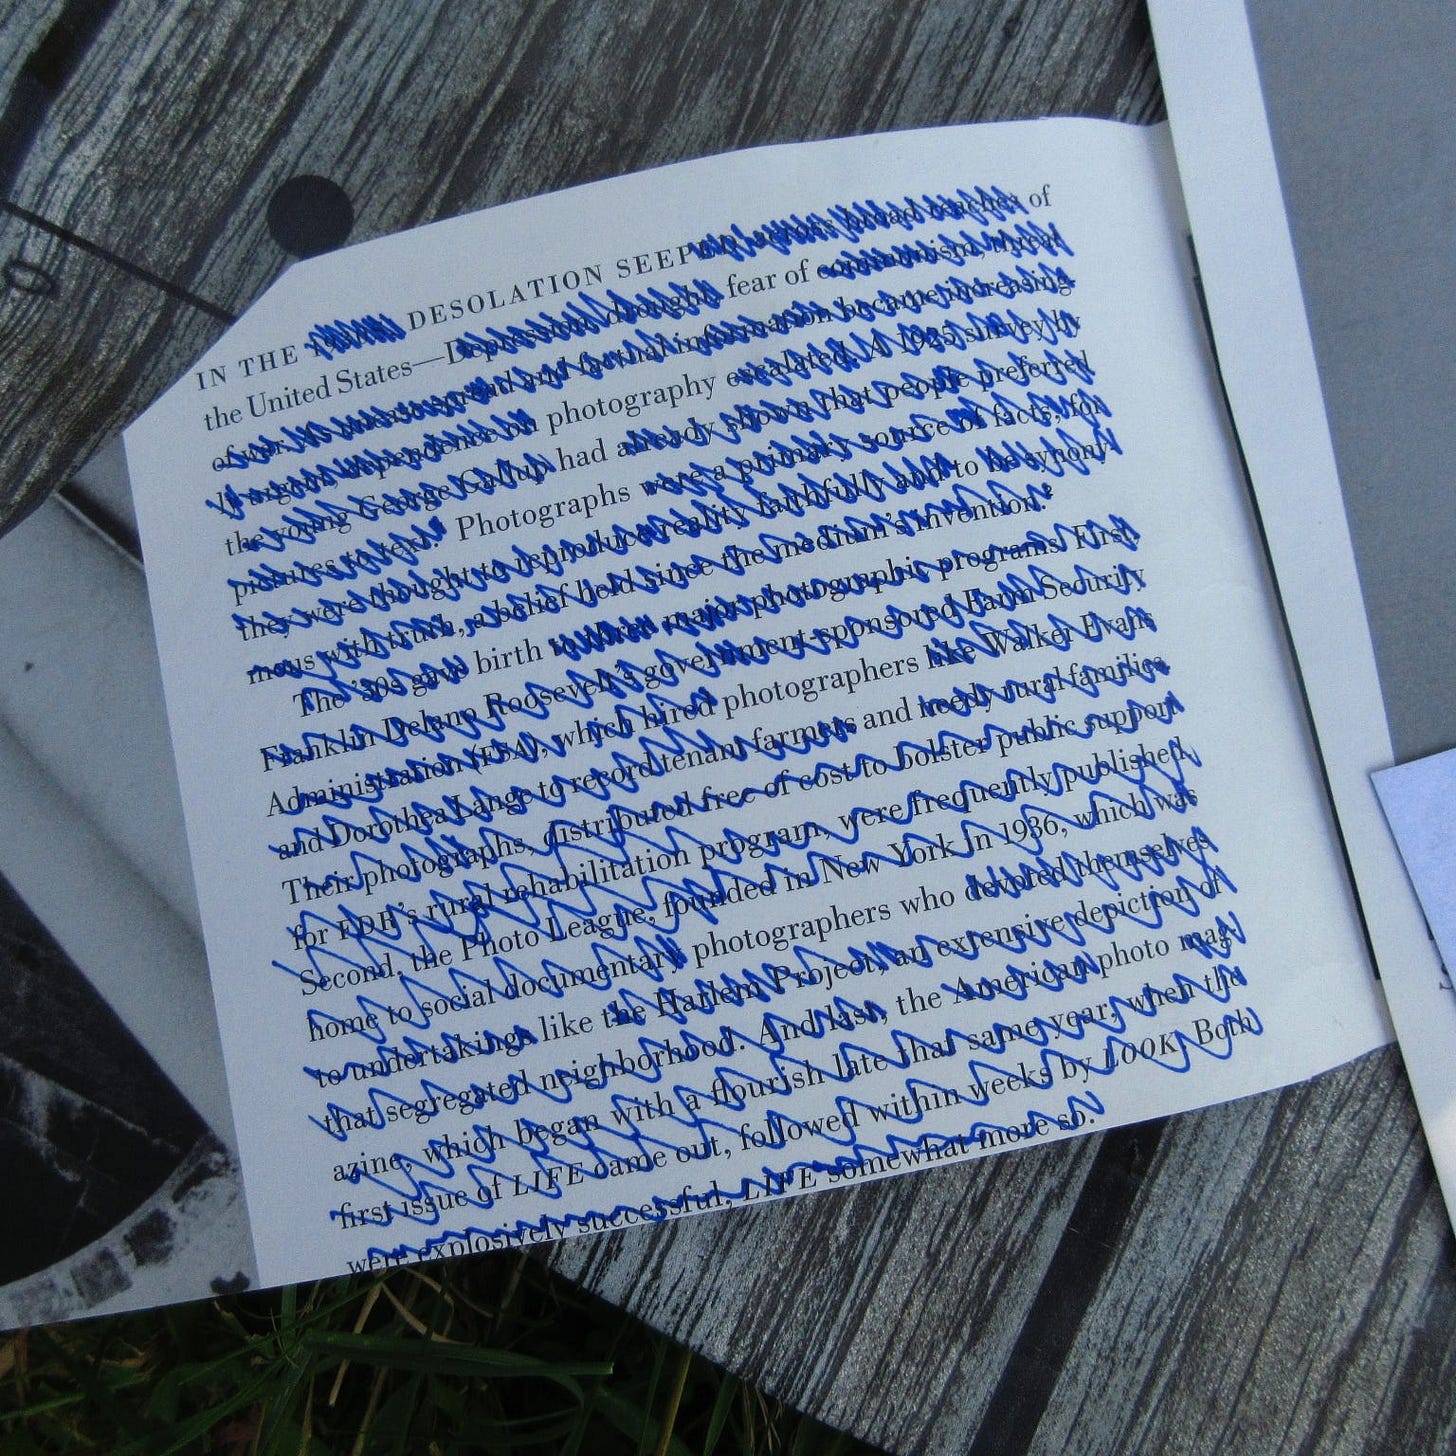 IN THE DESOLATION SEEPED across broad reaches of
the United States—Depression, drought, fear of communism, threat
of war. and factual information became increasing-
ly urgent, dependence on photography escalated. A 1925 survey by
the young George Gallup had already shown that people preferred
pictures to text.¹ Photographs were a primary source of facts, for
they were thought to reproduce reality faithfully and to be synony-
mous with truth, a belief held since the medium's invention.²
The '30s gave birth to three major photographic programs. First,
Franklin Delano Roosevelt's government-sponsored Farm Security
Administration (FSA), which hired photographers like Walker Evans
and Dorothea Lange to record tenant farmers and needy rural families.
Their photographs, distributed free of cost to bolster public support
for FDR's rural rehabilitation program, were frequently published.
Second, the Photo League, founded in New York in 1936, which was
home to social documentary photographers who devoted themselves
to undertakings like the Harlem Project, an extensive depiction of
that segregated neighborhood. And last, the American photo mag-
azine, which began with a flourish late that same year, when the
first issue of LIFE came out, followed within weeks by LOOK. Both
were explosively successful, LIFE somewhat more so.